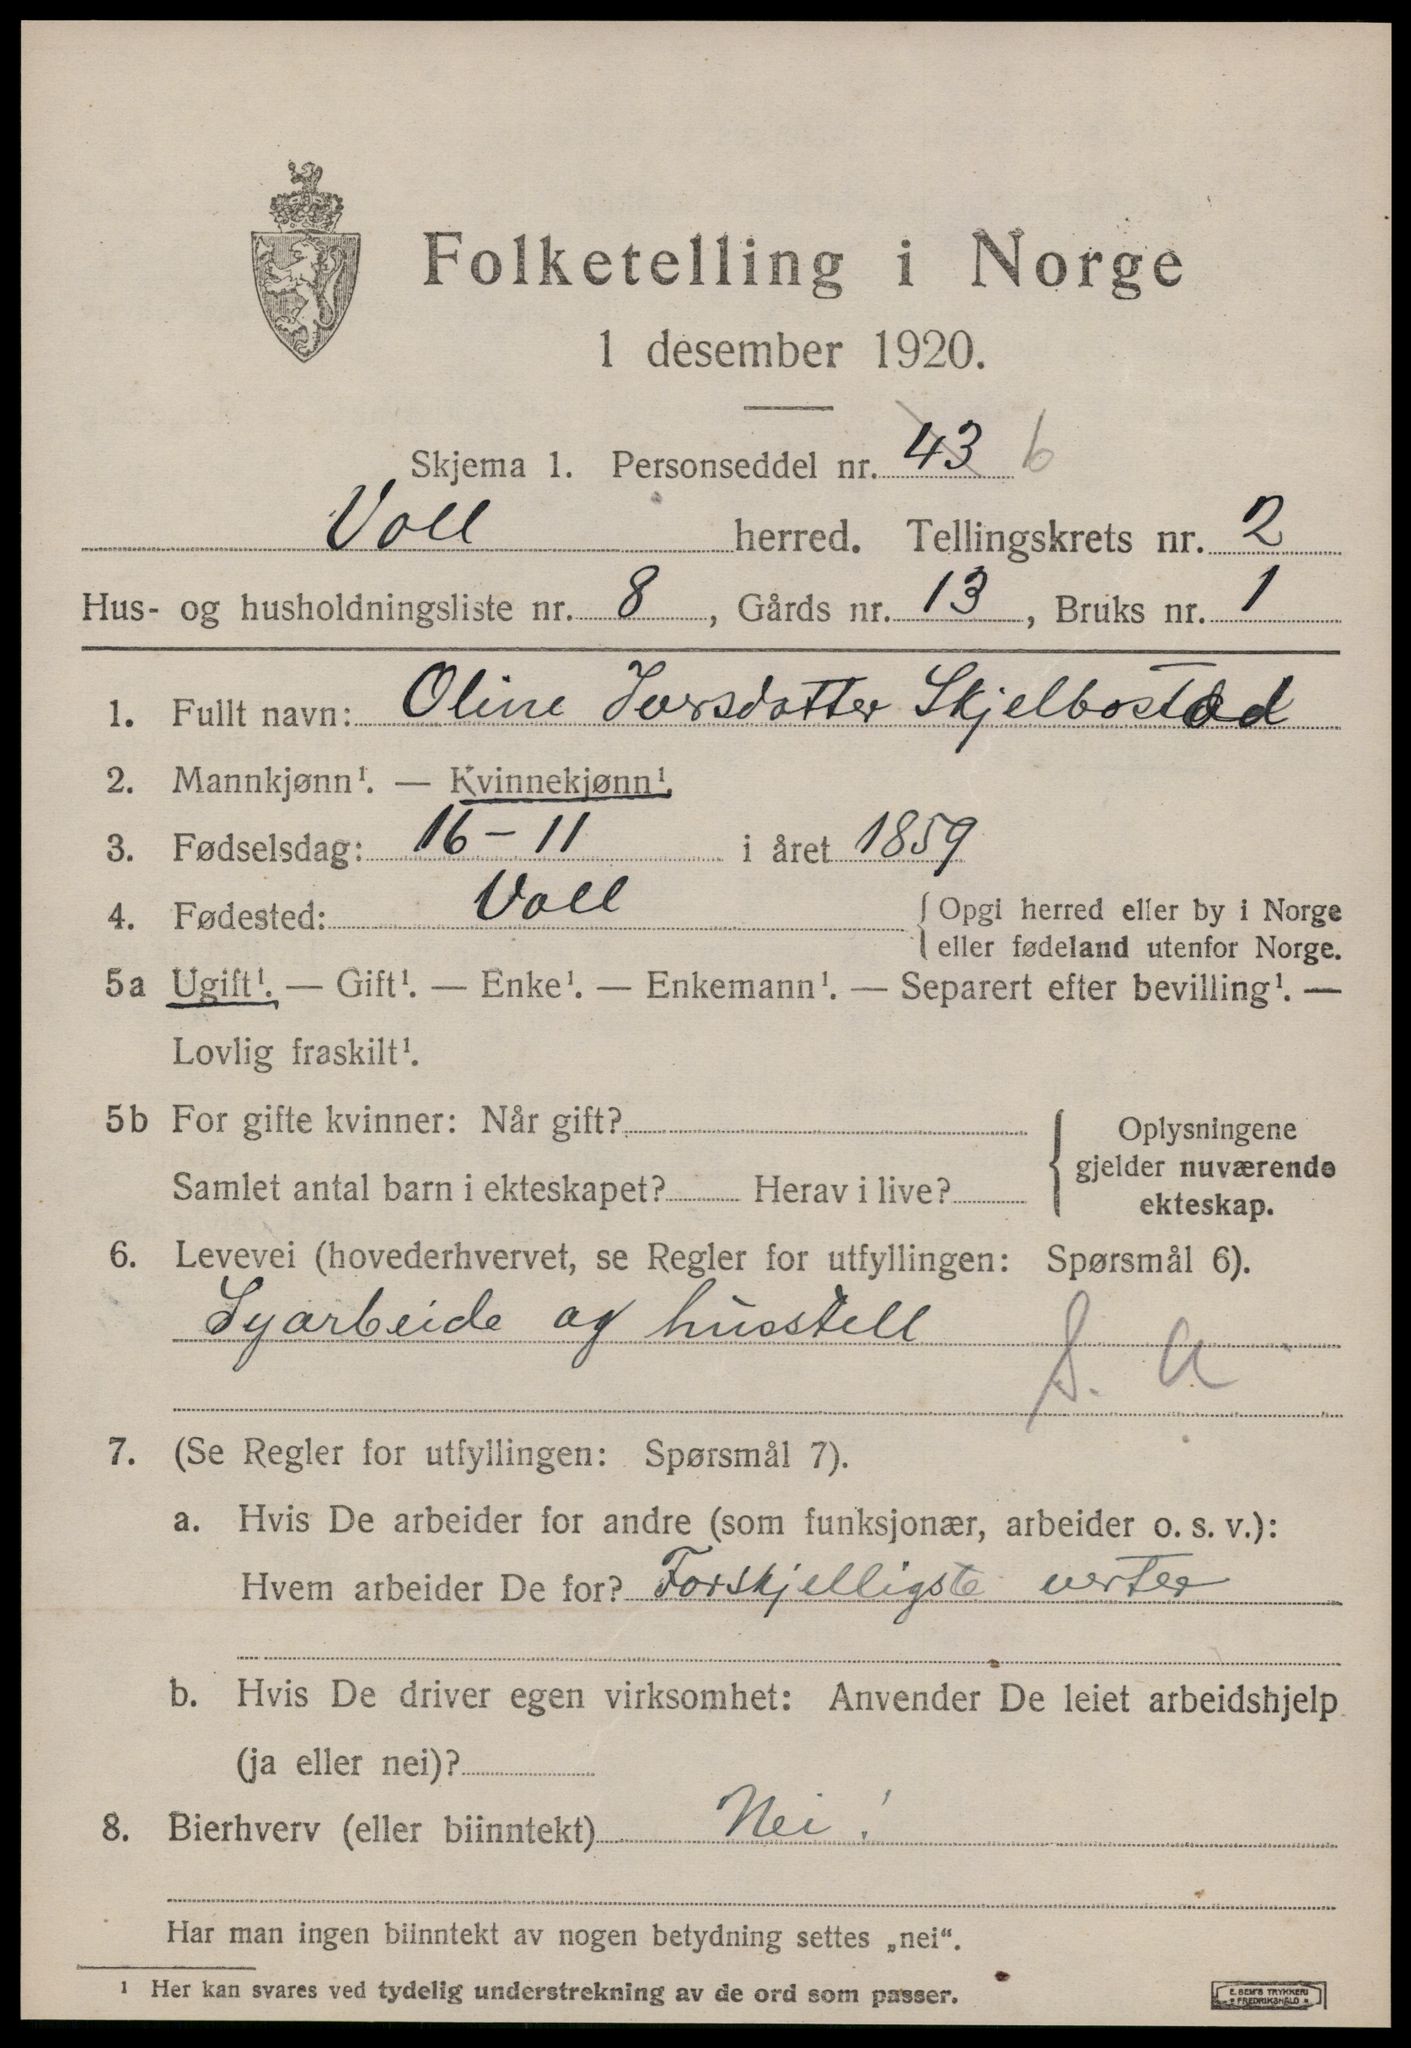 Folketelling i Norge
1 desember 1920.
Skjema 1. Personseddel nr. 43 6
Voll herred. Tellingskrets nr. 2
Hus- og husholdningsliste nr. 8, Gårds nr. 13, Bruks nr. 1
1. Fullt navn: Oline Iversdatter Skjelbostad
2. Mannkjønn¹. — Kvinnekjønn¹.
3. Fødselsdag: 16-11 i året 1859
4. Fødested: Voll { Opgi herred eller by i Norge
eller fødeland utenfor Norge.
5a Ugift¹. — Gift¹. — Enke¹. — Enkemann¹. — Separert efter bevilling¹. —
Lovlig fraskilt¹.
5b For gifte kvinner: Når gift? { Oplysningene
gjelder nuværende
Samlet antal barn i ekteskapet? Herav i live?
ekteskap.
6. Levevei (hovederhvervet, se Regler for utfyllingen: Spørsmål 6).
Syarbeide og husstell
S. A
7. (Se Regler for utfyllingen: Spørsmål 7).
a. Hvis De arbeider for andre (som funksjonær, arbeider o. s. v.):
Hvem arbeider De for? Forskjelligste verter
b. Hvis De driver egen virksomhet: Anvender De leiet arbeidshjelp
(ja eller nei)?
8. Bierhverv (eller biinntekt) Nei!
Har man ingen biinntekt av nogen betydning settes „nei“.
¹ Her kan svares ved tydelig understrekning av de ord som passer.
E. SEM'S TRYKKERI
FREDRIKSHALD